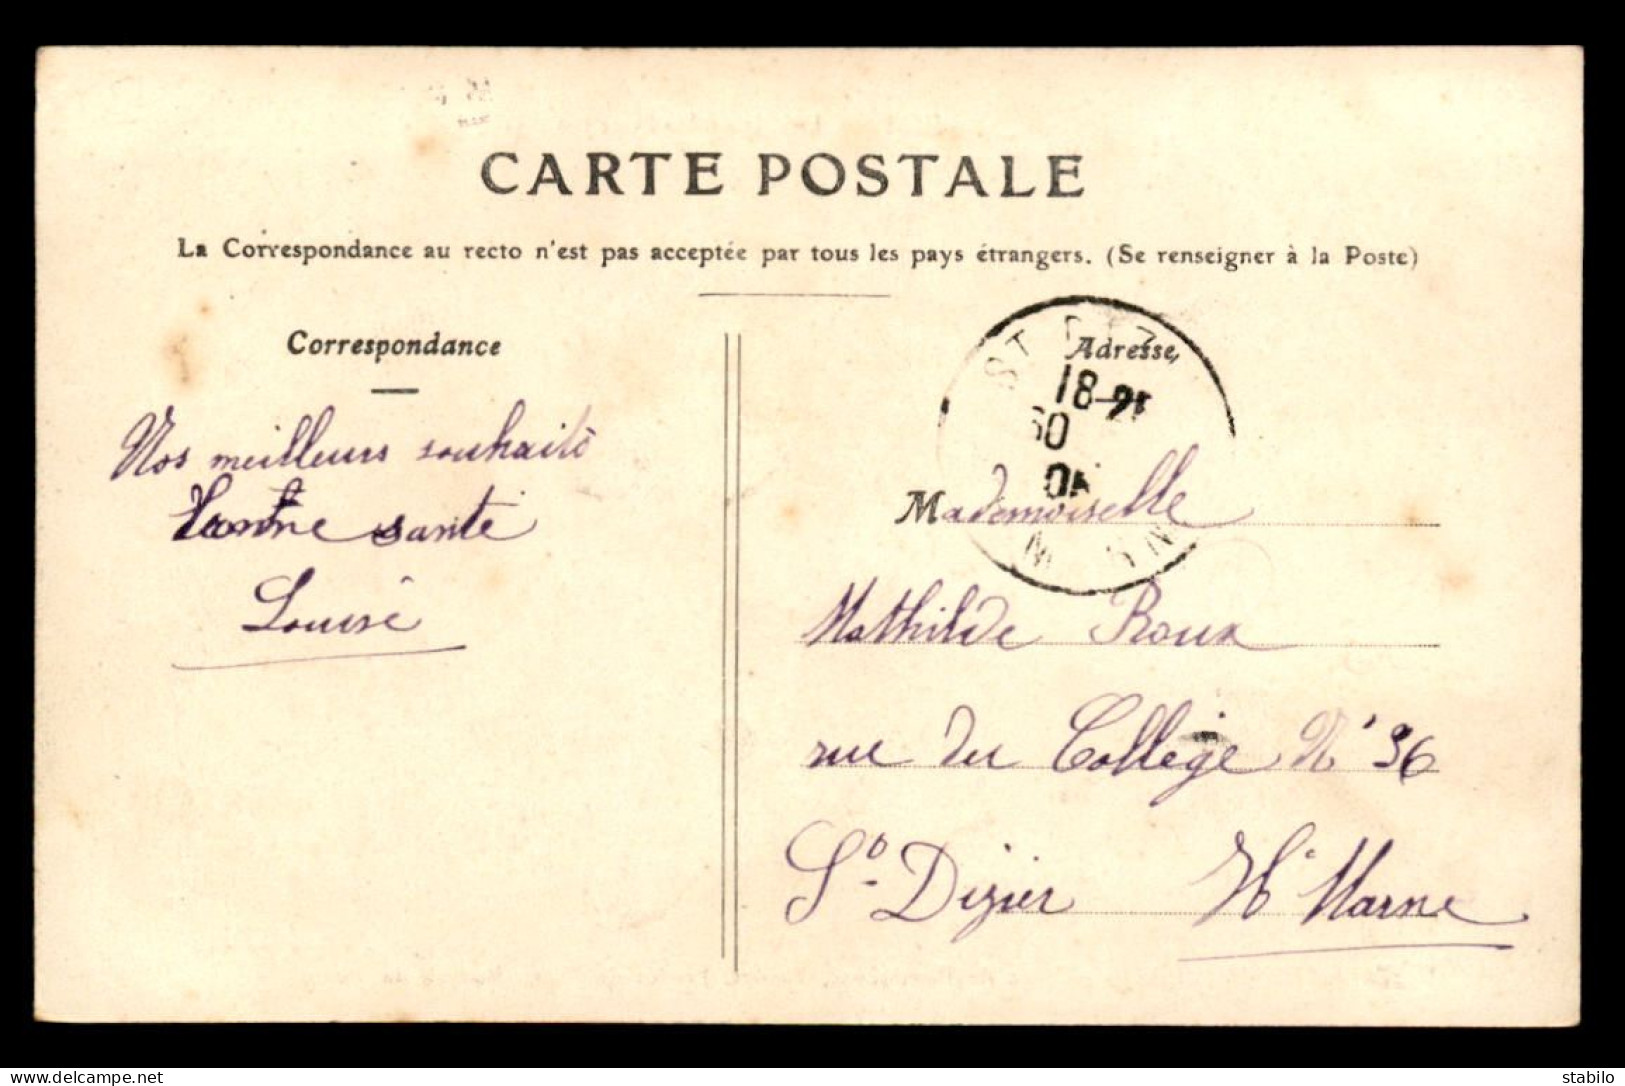 CARTE POSTALE
La Correspondance au recto n'est pas acceptée par tous les pays étrangers. (Se renseigner à la Poste)
Correspondance
Nos meilleurs souhaits
bonne santé
Louise
Adresse
ST DIZ
18-
Mademoiselle
Mathilde Roux
rue du Collège N° 36
St Dizier Hte Marne
https://www.delcampe.net
stabilo